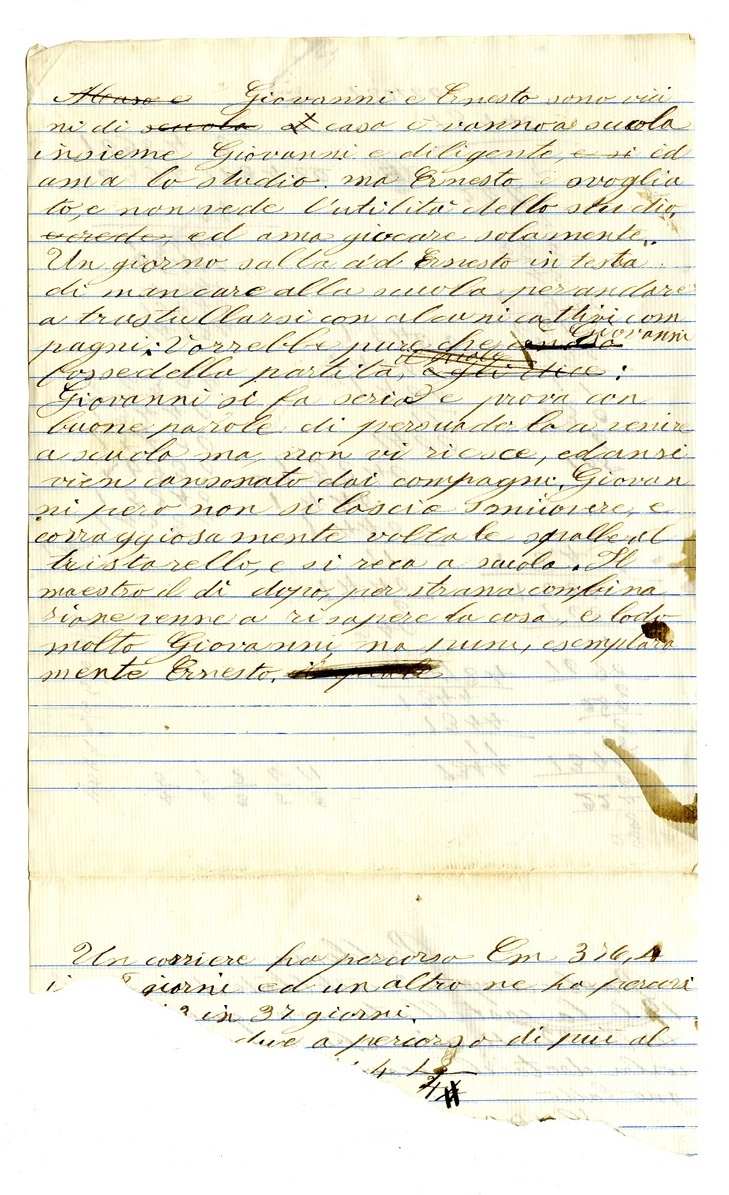 Giovanni e Ernesto sono vici
ni di scuola casa e vanno a scuola
insieme Giovanni e diligente, e si ed
ama lo studio. ma Ernesto è svoglia
to, e non vede l'utilità dello studio,
ed ama giocare solamente.
Un giorno salta a d Ernesto in testa
di mancare alla scuola per andare
a trastullarsi con alcuni cattivi com
pagni. Vorrebbe pure che Giovanni
fosse della partita, :
Giovanni si fa serio e prova con
buone parole di persuaderlo a venire
a scuola ma, non vi riesce, ed anzi
vien canzonato dai compagni. Giovan
ni pero non si lascia smuovere, e
corraggiosamente volta le spalle al
tristarello, e si reca a scuola. Il
maestro il di dopo, per strana combina
zione venne a risapere la cosa, e lodo
molto Giovanni, ma puni, esemplara
mente Ernesto. il quale
Un corriere ha percorso Cm 376,4
giorni ed un altro ne ha percori
in 37 giorni.
due a percorso di più al